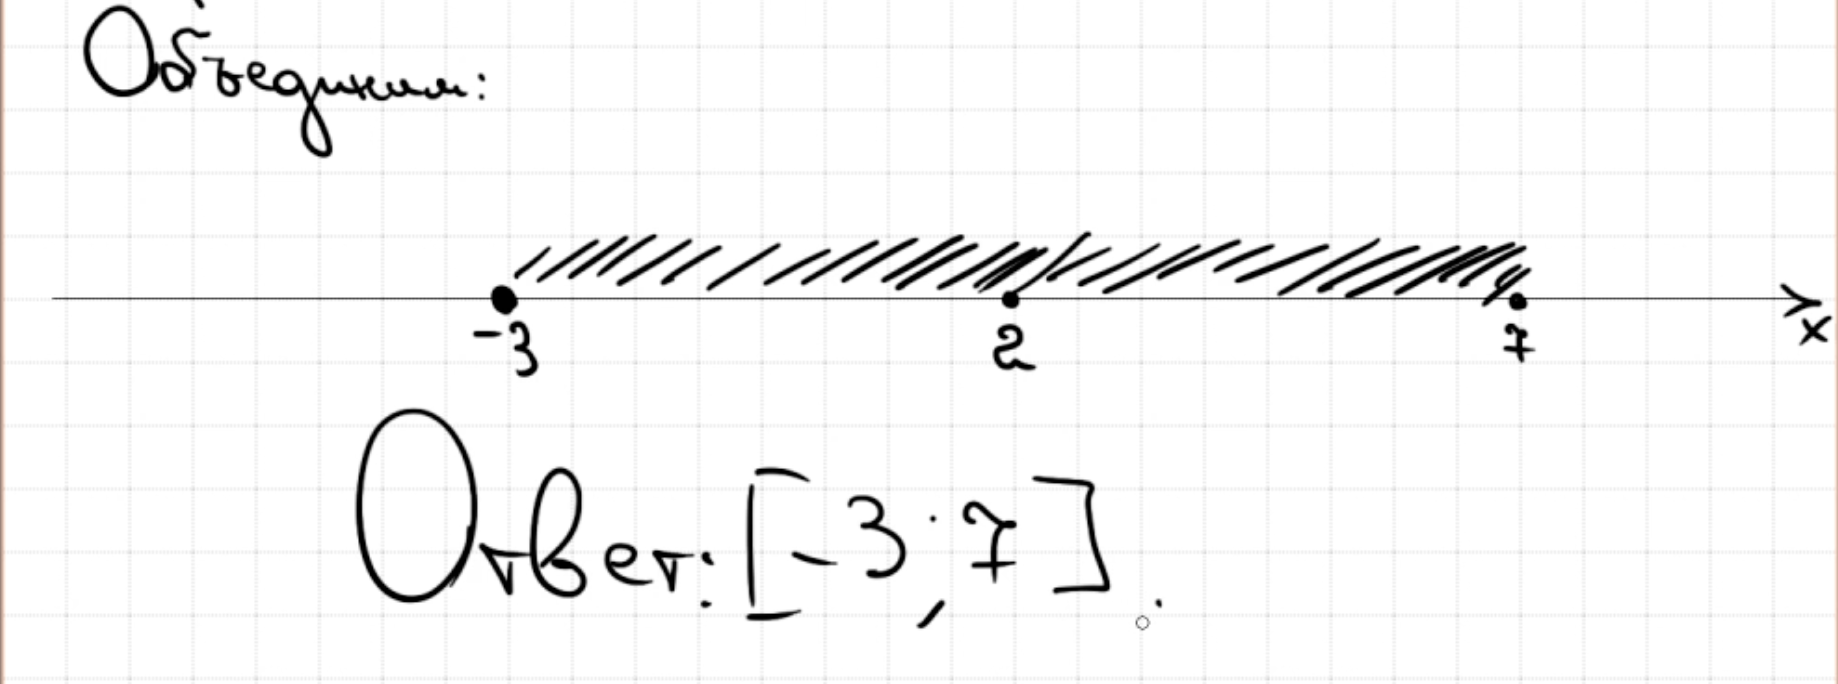 Объединим:
-3 2 7 x
Ответ: [-3; 7].